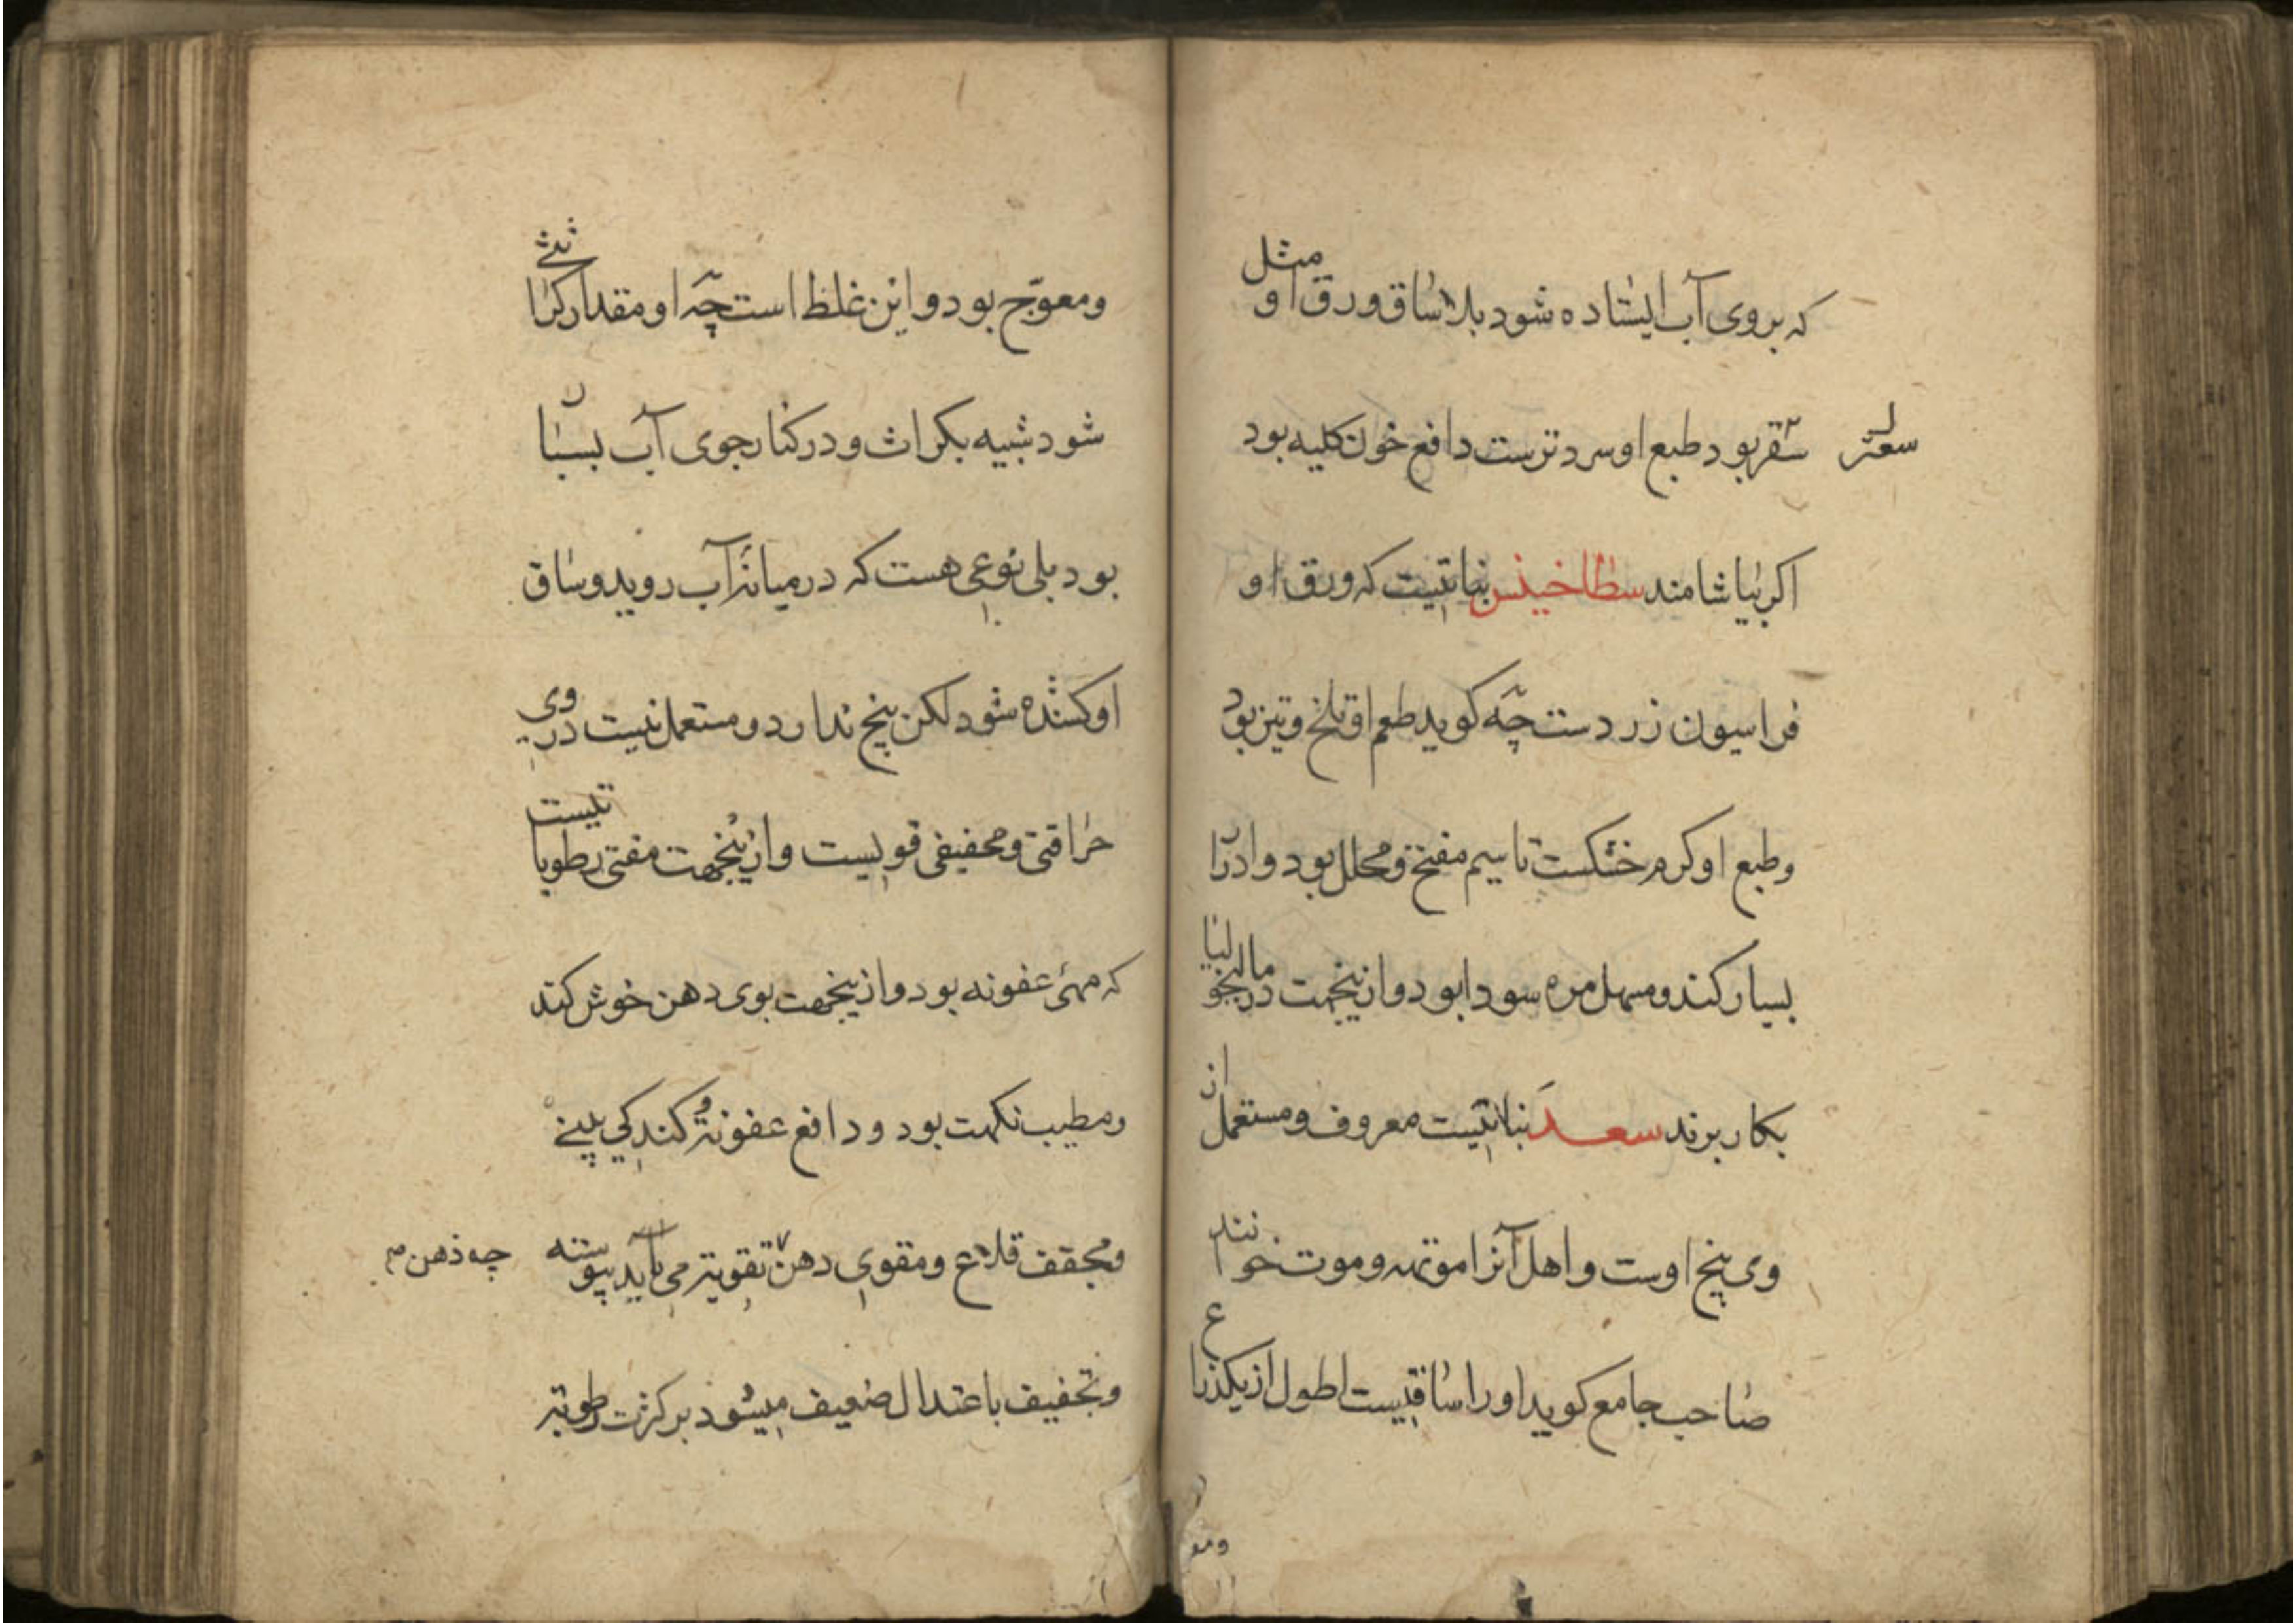 که بروی آب ایستاده شود بلا ساق ورق او مثل
سقر بود طبع او سردترست دافع خون کلیه بود
سعتر
اکر بیاشامند سطاخینس نباتیست که ورق او
فراسیون زردست چه کوید طعم او تلخ و تیز بود
وطبع او کرم خشکست تا سیم مفتح و محلل بود وادرا
بسیار کند ومسهل مره سودا بود وازینجهت در مالیخولیا
بکار برند سعد نباتیست معروف ومستعمل از
وی بیخ اوست واهل آنرا موته وموت خوانند
صاحب جامع کوید اورا ساقیست اطول از یکذراع
ومعو
ومعوّج بود واین غلظ است چه او مقدار کراثی
شود شبیه بکراث ودر کنار جوی آب بستان
بود بلی نوعی هست که در میانه آب روید وساق
او کنده شود لکن بیخ ندارد ومستعمل نیست در وی
حراقتی ومحفیفی قویست وازینجهت مفتی رطوباتیست
که مهئ عفونه بود وازینجهت بوی دهن خوش کند
ومطیب نکهت بود ودافع عفونة وکندکی بینی
ومجفف قلاع ومقوی دهن تقویتر می باید پیوسته
چه ذهن م
وتجفیف باعتدال ضعیف میشود بر کثرت رطوبتر